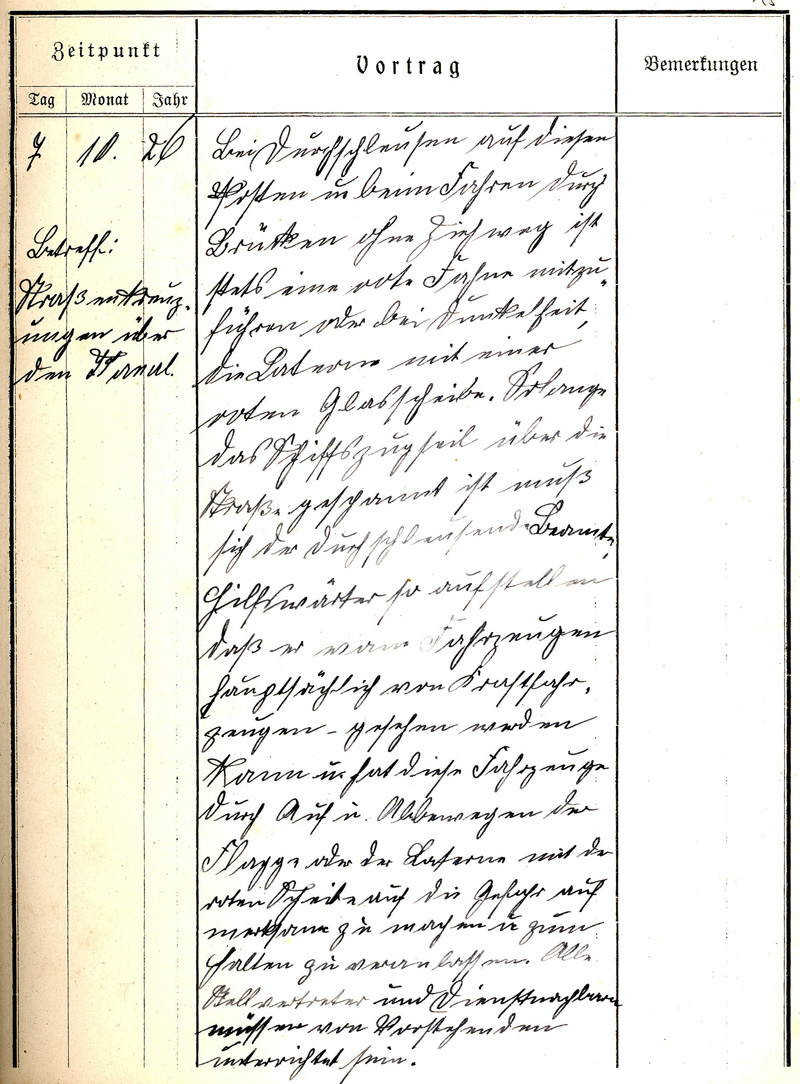 Zeitpunkt
Vortrag
Bemerkungen
Tag Monat Jahr
7 10. 26
Betreff:
Straßenkreuz-
ungen über
den Kanal.
Bei Durchschleusen auf diesen
Posten u. beim Fahren durch
Brücken ohne Ziehweg ist
stets eine rote Fahne mitzu-
führen oder bei Dunkelheit,
die Laterne mit einer
roten Glasscheibe. Solange
das Schiffszugseil über die
Straße gespannt ist muß
sich der durchschleusende Beamte,
Hilfswärter so aufstellen
daß er von Fahrzeugen
hauptsächlich von Kraftfahr-
zeugen - gesehen werden
kann u. hat diese Fahrzeuge
durch Auf u. Abbewegen der
Flagge oder der Laterne mit der
roten Scheibe auf die Gefahr auf
merksam zu machen u zum
halten zu veranlassen. Alle
Stellvertreter und Dienstnachbarn
müssen von Vorstehenden
unterrichtet sein.